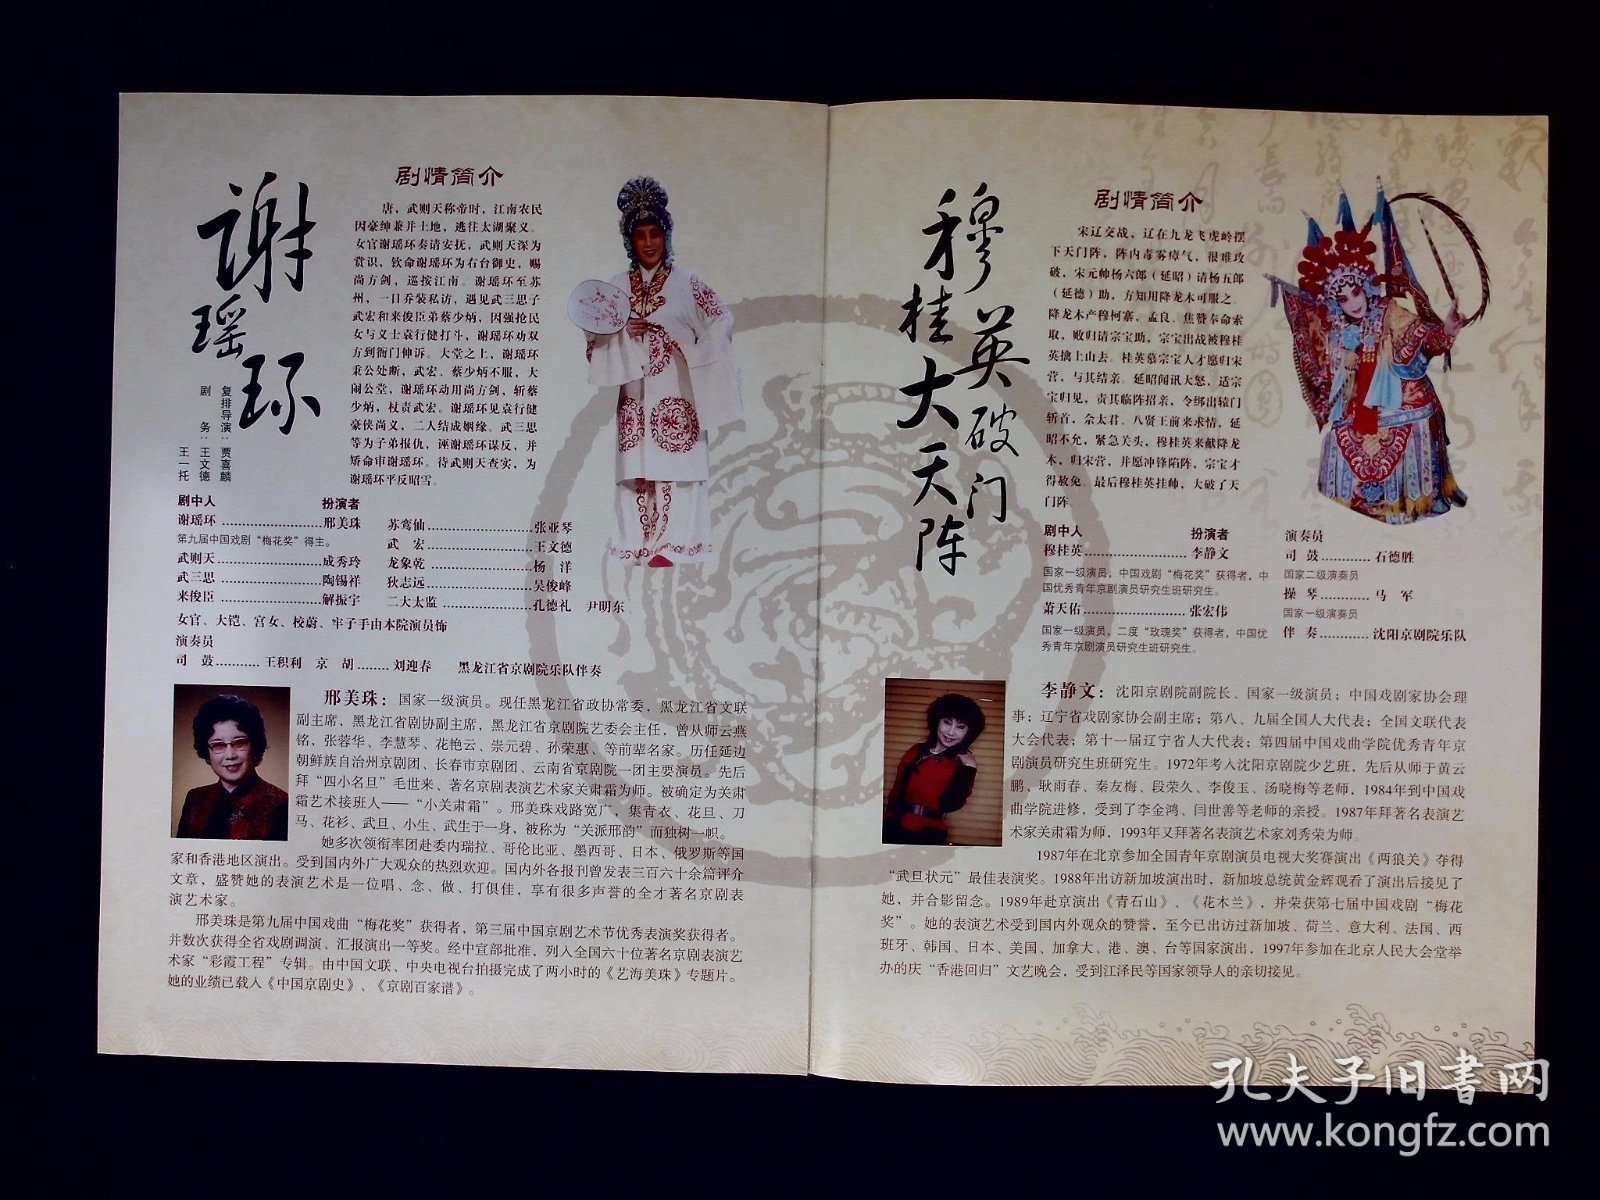 谢瑶环
复排导演：贾喜麟
剧务：王文德
王一托
剧情简介
唐，武则天称帝时，江南农民
因豪绅兼并土地，逃往太湖聚义。
女官谢瑶环奏请安抚，武则天深为
赏识，钦命谢瑶环为右台御史，赐
尚方剑，巡按江南。谢瑶环至苏
州，一日乔装私访，遇见武三思子
武宏和来俊臣弟蔡少炳，因强抢民
女与义士袁行健打斗，谢瑶环劝双
方到衙门伸诉。大堂之上，谢瑶环
秉公处断，武宏、蔡少炳不服，大
闹公堂，谢瑶环动用尚方剑，斩蔡
少炳，杖责武宏。谢瑶环见袁行健
豪侠尚义，二人结成姻缘。武三思
等为子弟报仇，诬谢瑶环谋反，并
矫命审谢瑶环。待武则天查实，为
谢瑶环平反昭雪。
剧中人 扮演者
谢瑶环……………………邢美珠 苏鸾仙……………………张亚琴
第九届中国戏剧“梅花奖”得主。 武 宏……………………王文德
武则天……………………成秀玲 龙象乾……………………杨 洋
武三思……………………陶锡祥 狄志远……………………吴俊峰
来俊臣……………………解振宇 二大太监…………………孔德礼 尹明东
女官、大铠、宫女、校蔚、牢子手由本院演员饰
演奏员
司 鼓…………王积利 京 胡………刘迎春 黑龙江省京剧院乐队伴奏
邢美珠：国家一级演员。现任黑龙江省政协常委，黑龙江省文联
副主席，黑龙江省剧协副主席，黑龙江省京剧院艺委会主任，曾从师云燕
铭，张蓉华、李慧琴、花艳云、崇元碧、孙荣惠、等前辈名家。历任延边
朝鲜族自治州京剧团、长春市京剧团、云南省京剧院一团主要演员。先后
拜“四小名旦”毛世来、著名京剧表演艺术家关肃霜为师。被确定为关肃
霜艺术接班人——“小关肃霜”。邢美珠戏路宽广，集青衣、花旦、刀
马、花衫、武旦、小生、武生于一身，被称为“关派邢韵”而独树一帜。
她多次领衔率团赴委内瑞拉、哥伦比亚、墨西哥、日本、俄罗斯等国
家和香港地区演出。受到国内外广大观众的热烈欢迎。国内外各报刊曾发表三百六十余篇评介
文章，盛赞她的表演艺术是一位唱、念、做、打俱佳，享有很多声誉的全才著名京剧表
演艺术家。
邢美珠是第九届中国戏曲“梅花奖”获得者，第三届中国京剧艺术节优秀表演奖获得者。
并数次获得全省戏剧调演、汇报演出一等奖。经中宣部批准，列入全国六十位著名京剧表演艺
术家“彩霞工程”专辑。由中国文联、中央电视台拍摄完成了两小时的《艺海美珠》专题片。
她的业绩已载入《中国京剧史》、《京剧百家谱》。
穆桂英大破天门阵
剧情简介
宋辽交战，辽在九龙飞虎岭摆
下天门阵，阵内毒雾瘴气，很难攻
破，宋元帅杨六郎（延昭）请杨五郎
（延德）助，方知用降龙木可服之。
降龙木产穆柯寨，孟良、焦赞奉命索
取，败归请宗宝助，宗宝出战被穆桂
英擒上山去。桂英慕宗宝人才愿归宋
营，与其结亲。延昭闻讯大怒，适宗
宝归见，责其临阵招亲，令绑出辕门
斩首，佘太君、八贤王前来求情，延
昭不允，紧急关头，穆桂英来献降龙
木，归宋营，并愿冲锋陷阵，宗宝才
得赦免。最后穆桂英挂帅，大破了天
门阵
剧中人 扮演者 演奏员
穆桂英……………………李静文 司 鼓…………石德胜
国家一级演员，中国戏剧“梅花奖”获得者，中 国家二级演奏员
国优秀青年京剧演员研究生班研究生。 操 琴…………马 军
萧天佑……………………张宏伟 国家一级演奏员
国家一级演员，二度“玫瑰奖”获得者，中国优 伴 奏…………沈阳京剧院乐队
秀青年京剧演员研究生班研究生。
李静文：沈阳京剧院副院长、国家一级演员；中国戏剧家协会理
事；辽宁省戏剧家协会副主席；第八、九届全国人大代表；全国文联代表
大会代表；第十一届辽宁省人大代表；第四届中国戏曲学院优秀青年京
剧演员研究生班研究生。1972年考入沈阳京剧院少艺班，先后从师于黄云
鹏、耿雨春、秦友梅、段荣久、李俊玉、汤晓梅等老师，1984年到中国戏
曲学院进修，受到了李金鸿、闫世善等老师的亲授。1987年拜著名表演艺
术家关肃霜为师，1993年又拜著名表演艺术家刘秀荣为师。
1987年在北京参加全国青年京剧演员电视大奖赛演出《两狼关》夺得
“武旦状元”最佳表演奖。1988年出访新加坡演出时，新加坡总统黄金辉观看了演出后接见了
她，并合影留念。1989年赴京演出《青石山》、《花木兰》，并荣获第七届中国戏剧“梅花
奖”。她的表演艺术受到国内外观众的赞誉，至今已出访过新加坡、荷兰、意大利、法国、西
班牙、韩国、日本、美国、加拿大、港、澳、台等国家演出，1997年参加在北京人民大会堂举
办的庆“香港回归”文艺晚会，受到江泽民等国家领导人的亲切接见。
孔夫子旧书网
www.kongfz.com